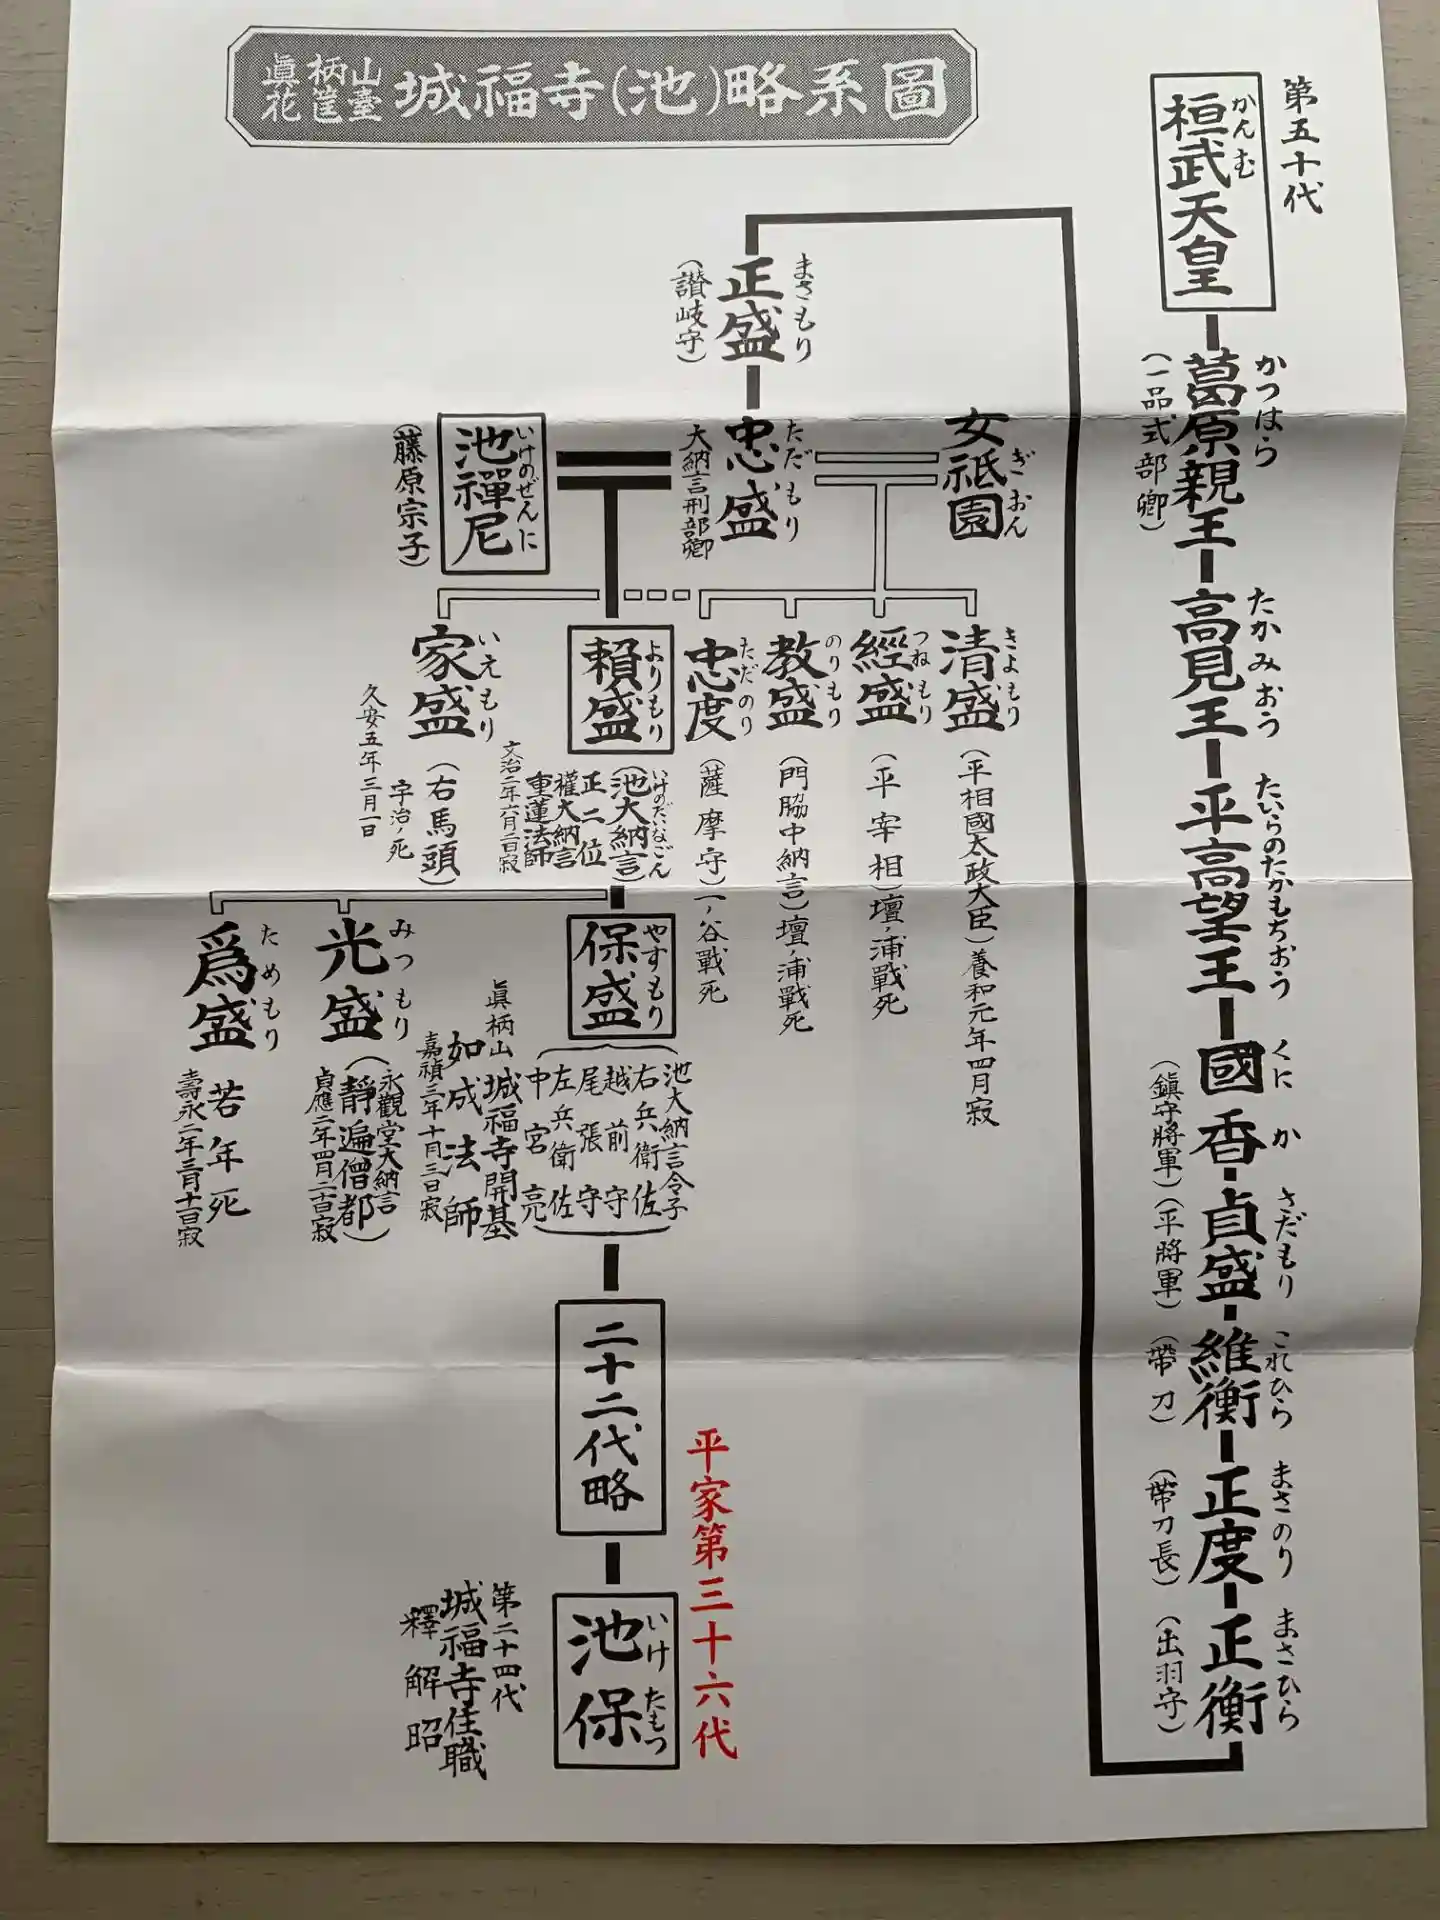 眞柄山
花筐臺
城福寺(池)略系圖
第五十代
桓武天皇
かんむ
葛原親王
かつはら
(一品式部卿)
高見王
たかみおう
平高望王
たいらのたかもちおう
國香
くにか
(鎮守將軍)
貞盛
さだもり
(平將軍)
維衡
これひら
(帶刀)
正度
まさのり
(帶刀長)
正衡
まさひら
(出羽守)
正盛
まさもり
(讃岐守)
祇園女
ぎおん
忠盛
ただもり
大納言刑部卿
池禪尼
いけのぜんに
(藤原宗子)
清盛
きよもり
(平相國太政大臣)養和元年四月寂
經盛
つねもり
(平宰相)壇ノ浦戰死
教盛
のりもり
(門脇中納言)壇ノ浦戰死
忠度
ただのり
(薩摩守)一ノ谷戰死
賴盛
よりもり
(池大納言)
いけのだいなごん
正二位
權大納言
重蓮法師
文治二年六月二日寂
家盛
いえもり
(右馬頭)
宇治ノ死
久安五年三月一日
保盛
やすもり
池大納言令子
右兵衛佐
越前守
尾張守
左兵衛佐
中宮亮
眞柄山城福寺開基
如成法師
嘉禎三年十月三日寂
光盛
みつもり
(永觀堂大納言
靜遍僧都)
貞應二年四月二十日寂
爲盛
ためもり
若年死
壽永二年三月十一日寂
二十二代略
平家第三十六代
池保
いけたもつ
第二十四代
城福寺住職
釋解昭